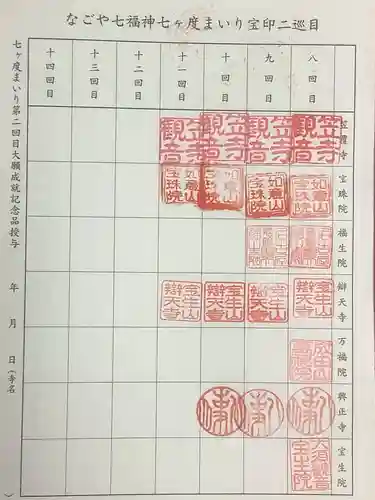 なごや七福神七ヶ度まいり宝印二巡目
八回目
九回目
十回目
十一回目
十二回目
十三回目
十四回目
笠覆寺
笠寺観音
笠寺観音
笠寺観音
笠寺観音
宝珠院
如意山宝珠院
如意山宝珠院
如意山宝珠院
如意山宝珠院
福生院
辯天寺
宝生山辯天寺
宝生山辯天寺
宝生山辯天寺
宝生山辯天寺
万福院
興正寺
宝生院
大須観音宝生院
七ヶ度まいり第二回目大願成就記念品授与
年 月 日 (寺名 )